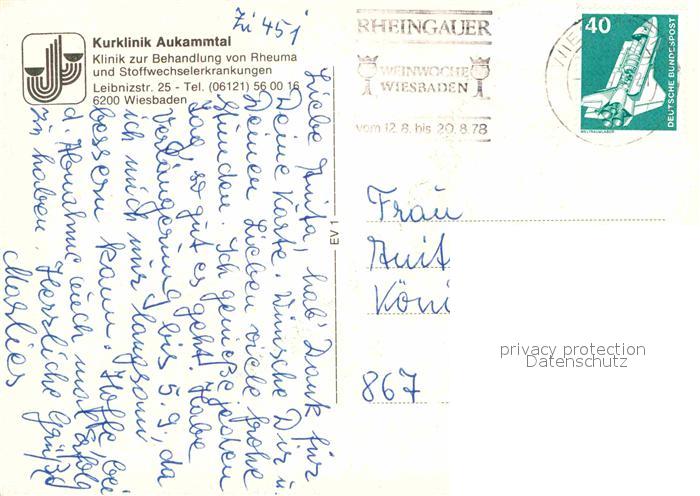 Zi 451
Kurklinik Aukammtal
Klinik zur Behandlung von Rheuma
und Stoffwechselerkrankungen
Leibnizstr. 25 - Tel. (06121) 56 00 16
6200 Wiesbaden
RHEINGAUER
WEINWOCHE
WIESBADEN
vom 12.8. bis 20.8.78
40
DEUTSCHE BUNDESPOST
WELTRAUMLABOR
Liebe Anita, hab' Dank für
Deine Karte. Wünsche Dir u.
Deinen Lieben viele frohe
Stunden. Ich genieße jeden
Tag, so gut es geht. Habe
Verlängerung bis 5.9, da
ich mich nur langsam
bessern kann. Hoffe, bei
d. Abnahme auch mal Erfolg
zu haben. Herzliche Grüße
Marlies
EV 1
Frau
Anit
Köni
867
privacy protection
Datenschutz